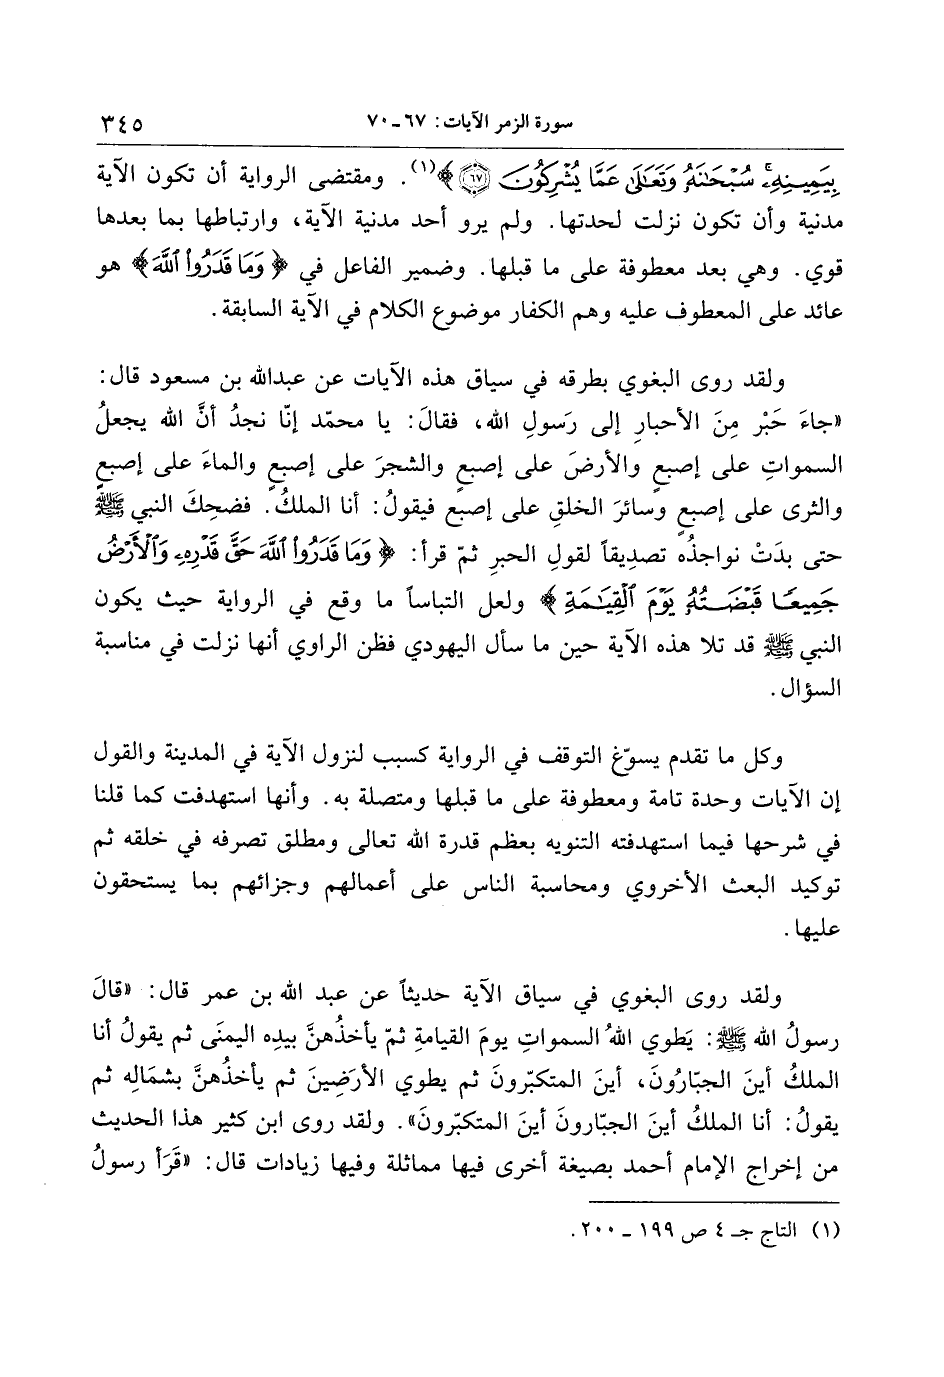 سورة الزمر الآيات: ٦٧ـ٧٠ ٣٤٥
بِيَمِينِهِۦۚ سُبْحَٰنَهُۥ وَتَعَٰلَىٰ عَمَّا يُشْرِكُونَ ٦٧﴾(١). ومقتضى الرواية أن تكون الآية
مدنية وأن تكون نزلت لحدتها. ولم يرو أحد مدنية الآية، وارتباطها بما بعدها
قوي. وهي بعد معطوفة على ما قبلها. وضمير الفاعل في ﴿وَمَا قَدَرُوا۟ ٱللَّهَ﴾ هو
عائد على المعطوف عليه وهم الكفار موضوع الكلام في الآية السابقة.
ولقد روى البغوي بطرقه في سياق هذه الآيات عن عبدالله بن مسعود قال:
«جاءَ حَبْر مِنَ الأحبارِ إلى رَسولِ الله، فقالَ: يا محمّد إنّا نجدُ أنَّ الله يجعلُ
السمواتِ على إصبعٍ والأرضَ على إصبعٍ والشجرَ على إصبعٍ والماءَ على إصبعٍ
والثرى على إصبعٍ وسائرَ الخلقِ على إصبعٍ فيقولُ: أنا الملكُ. فضحِكَ النبي ﷺ
حتى بدَتْ نواجذُه تصدِيقاً لقولِ الحبرِ ثمّ قرأ: ﴿وَمَا قَدَرُوا۟ ٱللَّهَ حَقَّ قَدْرِهِۦ وَٱلْأَرْضُ
جَمِيعًا قَبْضَتُهُۥ يَوْمَ ٱلْقِيَٰمَةِ﴾ ولعل التباساً ما وقع في الرواية حيث يكون
النبي ﷺ قد تلا هذه الآية حين ما سأل اليهودي فظن الراوي أنها نزلت في مناسبة
السؤال.
وكل ما تقدم يسوّغ التوقف في الرواية كسبب لنزول الآية في المدينة والقول
إن الآيات وحدة تامة ومعطوفة على ما قبلها ومتصلة به. وأنها استهدفت كما قلنا
في شرحها فيما استهدفته التنويه بعظم قدرة الله تعالى ومطلق تصرفه في خلقه ثم
توكيد البعث الأخروي ومحاسبة الناس على أعمالهم وجزائهم بما يستحقون
عليها.
ولقد روى البغوي في سياق الآية حديثاً عن عبد الله بن عمر قال: «قالَ
رسولُ الله ﷺ: يَطوي اللهُ السمواتِ يومَ القيامةِ ثمّ يأخذُهنَّ بيدِه اليمنَى ثم يقولُ أنا
الملكُ أينَ الجبّارُونَ، أينَ المتكبّرونَ ثم يطوي الأرَضِينَ ثم يأخذُهنَّ بشمَالِه ثم
يقولُ: أنا الملكُ أينَ الجبّارونَ أينَ المتكبّرونَ». ولقد روى ابن كثير هذا الحديث
من إخراج الإمام أحمد بصيغة أخرى فيها مماثلة وفيها زيادات قال: «قَرَأ رسولُ
(١) التاج جـ ٤ ص ١٩٩ ـ ٢٠٠.